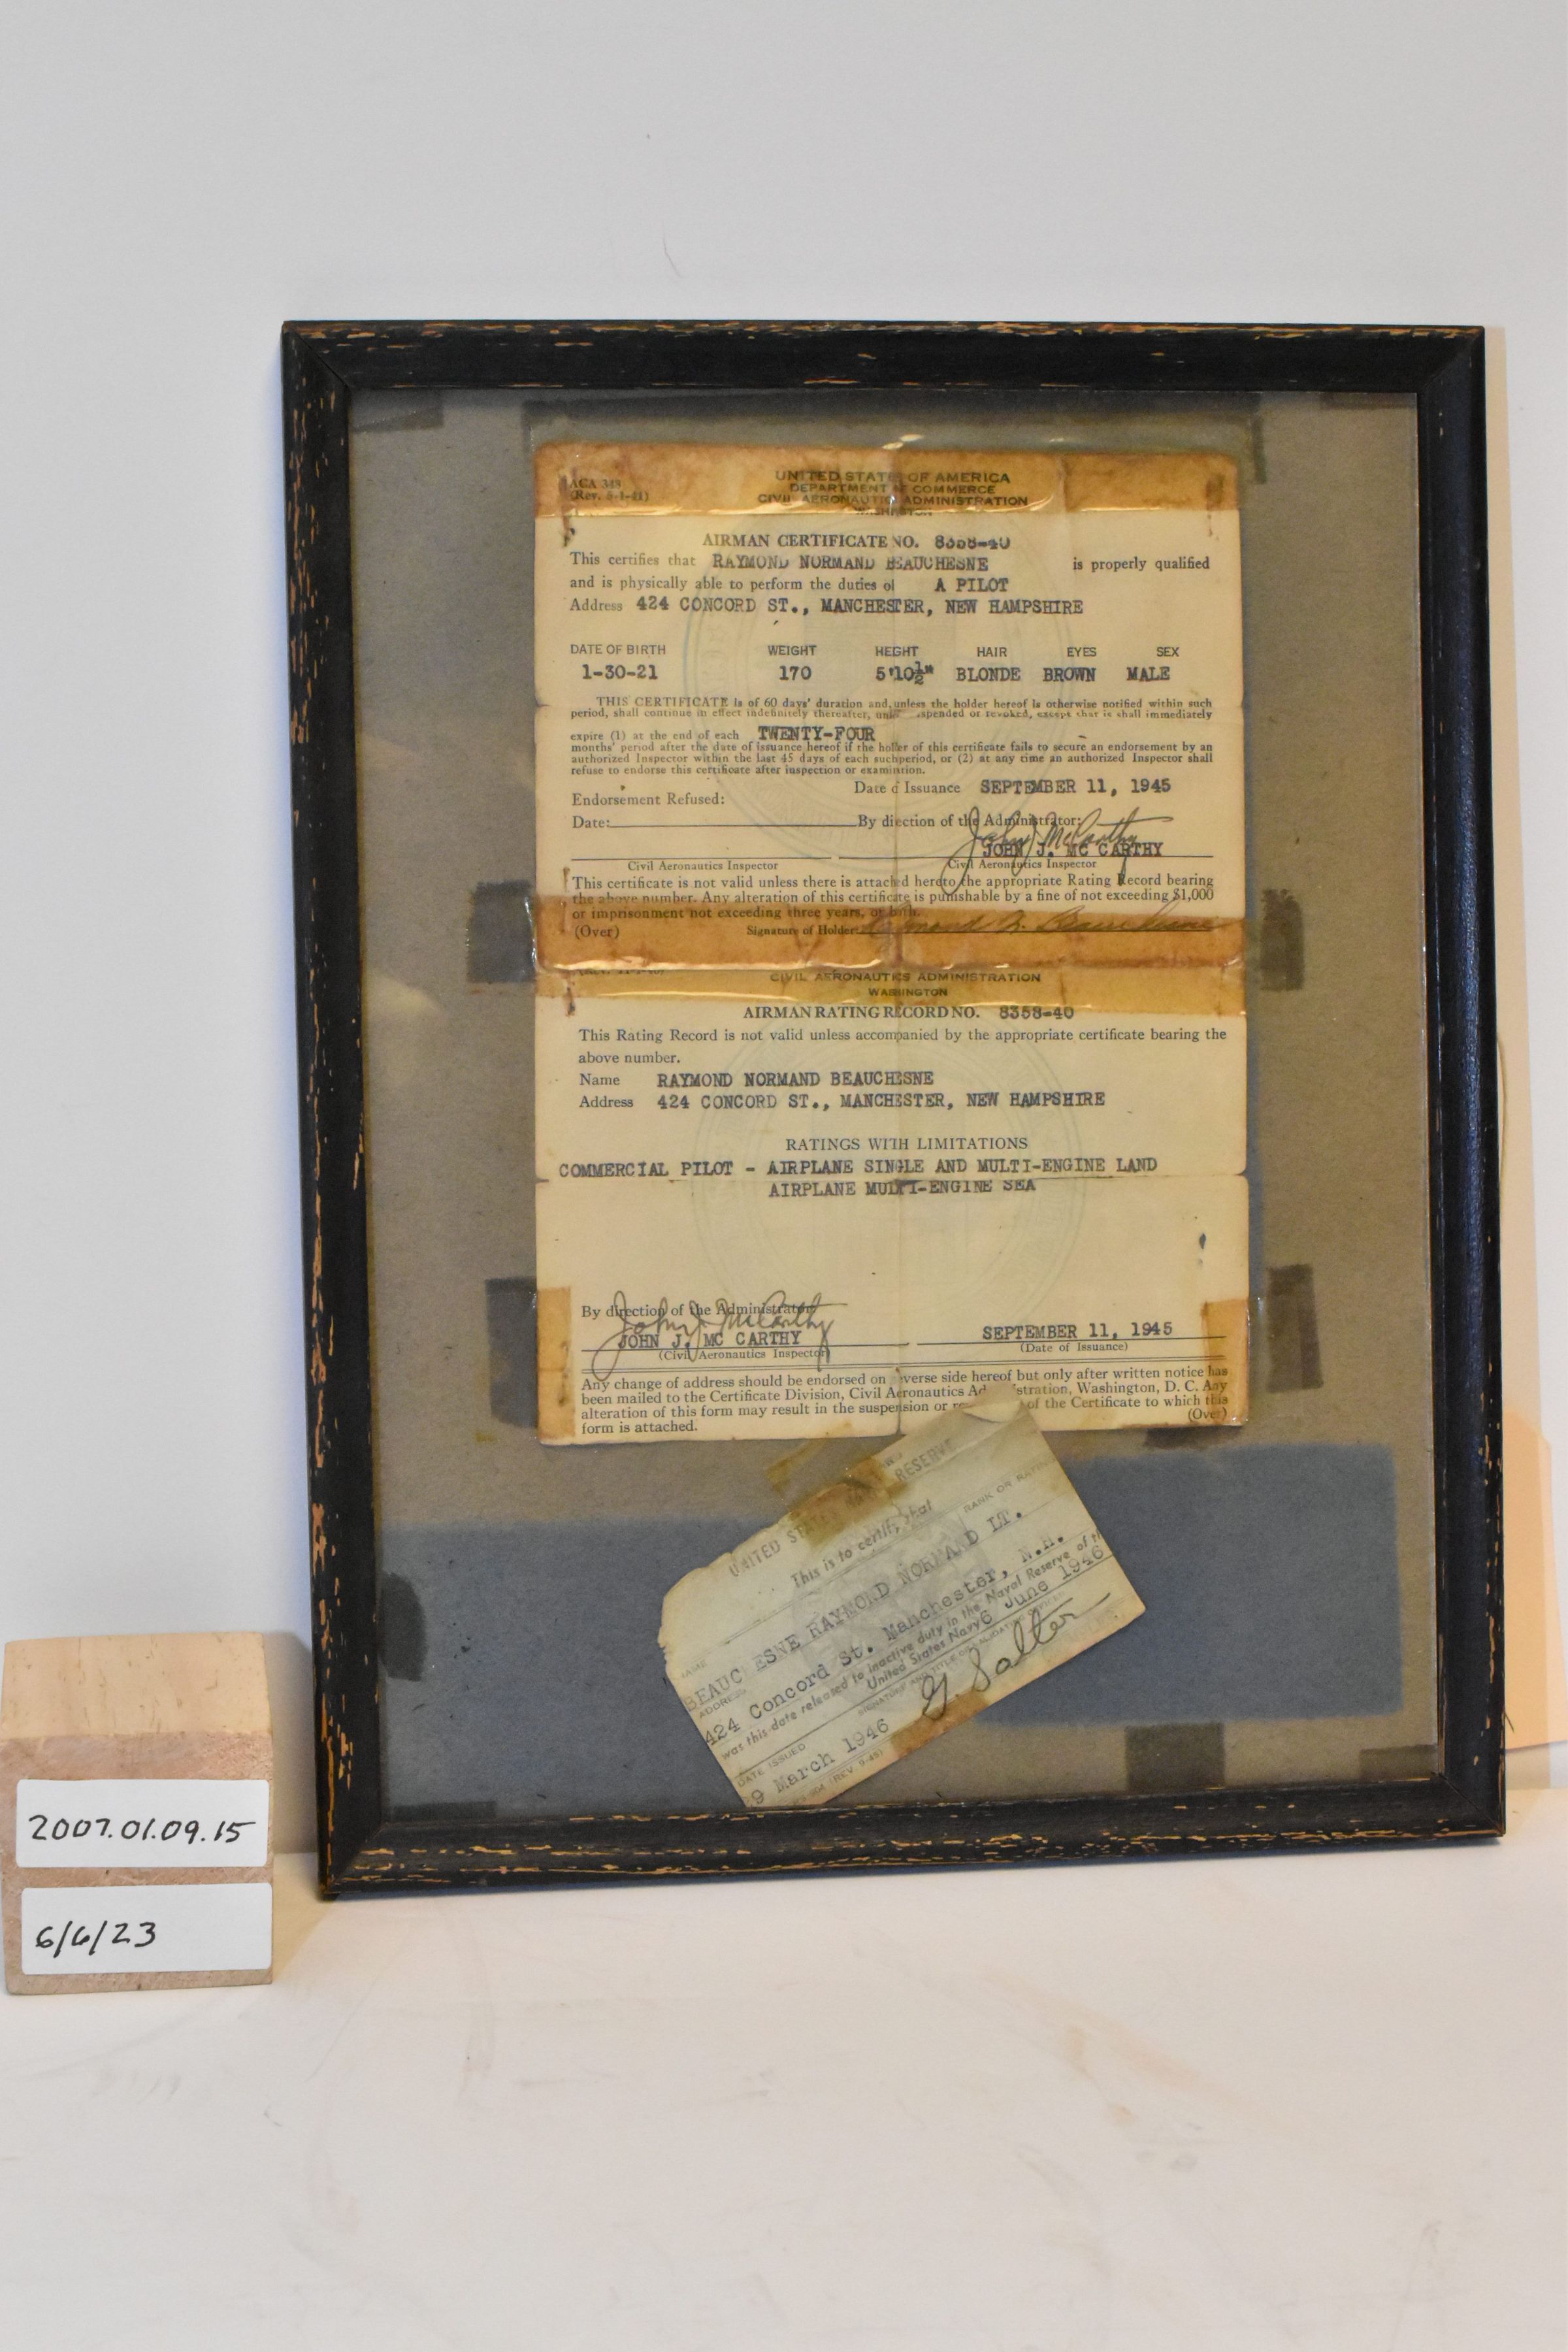 ACA 348
(Rev. 6-1-41)
UNITED STATES OF AMERICA
DEPARTMENT OF COMMERCE
CIVIL AERONAUTICS ADMINISTRATION
WASHINGTON
AIRMAN CERTIFICATE NO. 8358-40
This certifies that RAYMOND NORMAND BEAUCHESNE is properly qualified
and is physically able to perform the duties of A PILOT
Address 424 CONCORD ST., MANCHESTER, NEW HAMPSHIRE
DATE OF BIRTH WEIGHT HEIGHT HAIR EYES SEX
1-30-21 170 5'10½" BLONDE BROWN MALE
THIS CERTIFICATE is of 60 days' duration and, unless the holder hereof is otherwise notified within such
period, shall continue in effect indefinitely thereafter, unless suspended or revoked, except that is shall immediately
expire (1) at the end of each TWENTY-FOUR
months' period after the date of issuance hereof if the holder of this certificate fails to secure an endorsement by an
authorized Inspector within the last 45 days of each such period, or (2) at any time an authorized Inspector shall
refuse to endorse this certificate after inspection or examination.
Date of Issuance SEPTEMBER 11, 1945
Endorsement Refused:
Date: By direction of the Administrator:
John J McCarthy
JOHN J. MC CARTHY
Civil Aeronautics Inspector Civil Aeronautics Inspector
This certificate is not valid unless there is attached hereto the appropriate Rating Record bearing
the above number. Any alteration of this certificate is punishable by a fine of not exceeding $1,000
or imprisonment not exceeding three years, or both.
(Over) Signature of Holder: Raymond N. Beauchesne
CIVIL AERONAUTICS ADMINISTRATION
WASHINGTON
AIRMAN RATING RECORD NO. 8358-40
This Rating Record is not valid unless accompanied by the appropriate certificate bearing the
above number.
Name RAYMOND NORMAND BEAUCHESNE
Address 424 CONCORD ST., MANCHESTER, NEW HAMPSHIRE
RATINGS WITH LIMITATIONS
COMMERCIAL PILOT - AIRPLANE SINGLE AND MULTI-ENGINE LAND
AIRPLANE MULTI-ENGINE SEA
By direction of the Administrator
John J McCarthy
JOHN J. MC CARTHY SEPTEMBER 11, 1945
(Civil Aeronautics Inspector) (Date of Issuance)
Any change of address should be endorsed on reverse side hereof but only after written notice has
been mailed to the Certificate Division, Civil Aeronautics Administration, Washington, D. C. Any
alteration of this form may result in the suspension or of the Certificate to which this
form is attached. (Over)
UNITED STATES RESERVE
This is to certify that
NAME RANK OR RATING
BEAUCHESNE RAYMOND NORMAND LT.
ADDRESS
424 Concord St. Manchester, N.H.
was this date released to inactive duty in the Naval Reserve of th
United States Navy 6 June 1946
DATE ISSUED SIGNATURE AND TITLE OF VALIDATING OFFICER
9 March 1946 G. Salter
(REV. 9-45)
2007.01.09.15
6/6/23